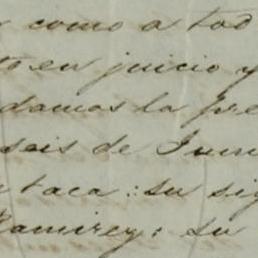 como a tod
to en juicio y
damos la pre
seis de Juni
taca: su sig
Ramirez: su